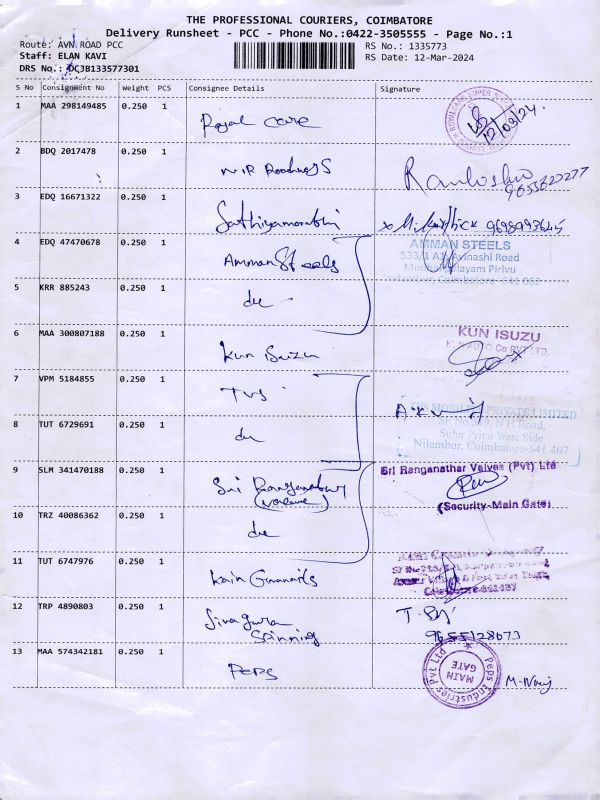 THE PROFESSIONAL COURIERS, COIMBATORE
Delivery Runsheet - PCC - Phone No.:0422-3505555 - Page No.:1
Route: AVN.ROAD PCC RS No.: 1335773
Staff: ELAN KAVI RS Date: 12-Mar-2024
DRS No.: DCJB133577301
S No Consignment No Weight PCS Consignee Details Signature
1 MAA 298149485 0.250 1 Royal care 12/03/24.
2 BDQ 2017478 0.250 1 Roadways
3 EDQ 16671322 0.250 1 9698993645
4 EDQ 47470678 0.250 1 Amman Steels AMMAN STEELS
533/1 A2, Avinashi Road
Pirivu
Coimbatore-641 062
5 KRR 885243 0.250 1 do
6 MAA 300807188 0.250 1 Kun Isuzu KUN ISUZU
7 VPM 5184855 0.250 1 TVS
8 TUT 6729691 0.250 1 do PRIVATE LIMITED
N H Road,
Sulur Privu West Side
Nilambur, Coimbatore-641 407
9 SLM 341470188 0.250 1 Sri Sri Ranganathar Valves (Pvt) Ltd
(Security-Main Gate)
10 TRZ 40086362 0.250 1 do
11 TUT 6747976 0.250 1
12 TRP 4890803 0.250 1 Sivagura
Spinning 9655128673
13 MAA 574342181 0.250 1 PEPS Peps Industries Pvt Ltd
MAIN GATE